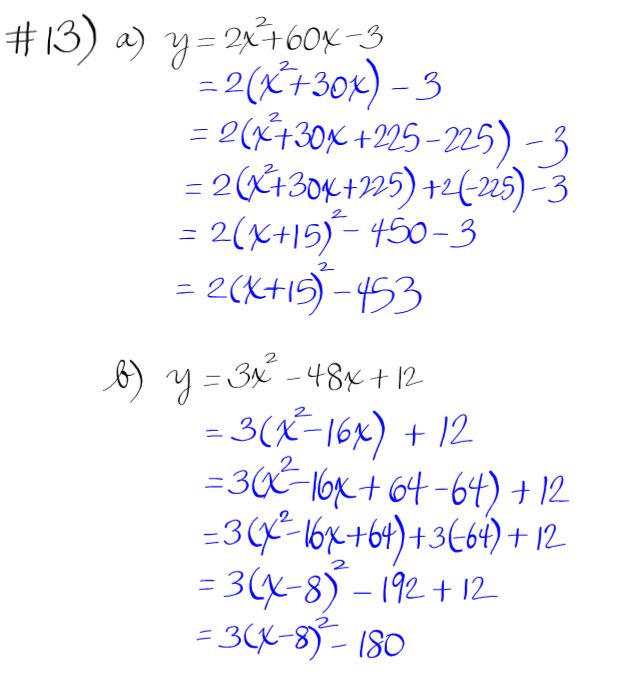 #13) a) y = 2x²+60x-3
= 2(x²+30x) - 3
= 2(x²+30x+225-225) - 3
= 2(x²+30x+225)+2(-225)-3
= 2(x+15)² - 450 - 3
= 2(x+15)² - 453
b) y = 3x² - 48x + 12
= 3(x²-16x) + 12
= 3(x²-16x+64-64) + 12
= 3(x²-16x+64)+3(-64)+12
= 3(x-8)² - 192 + 12
= 3(x-8)² - 180